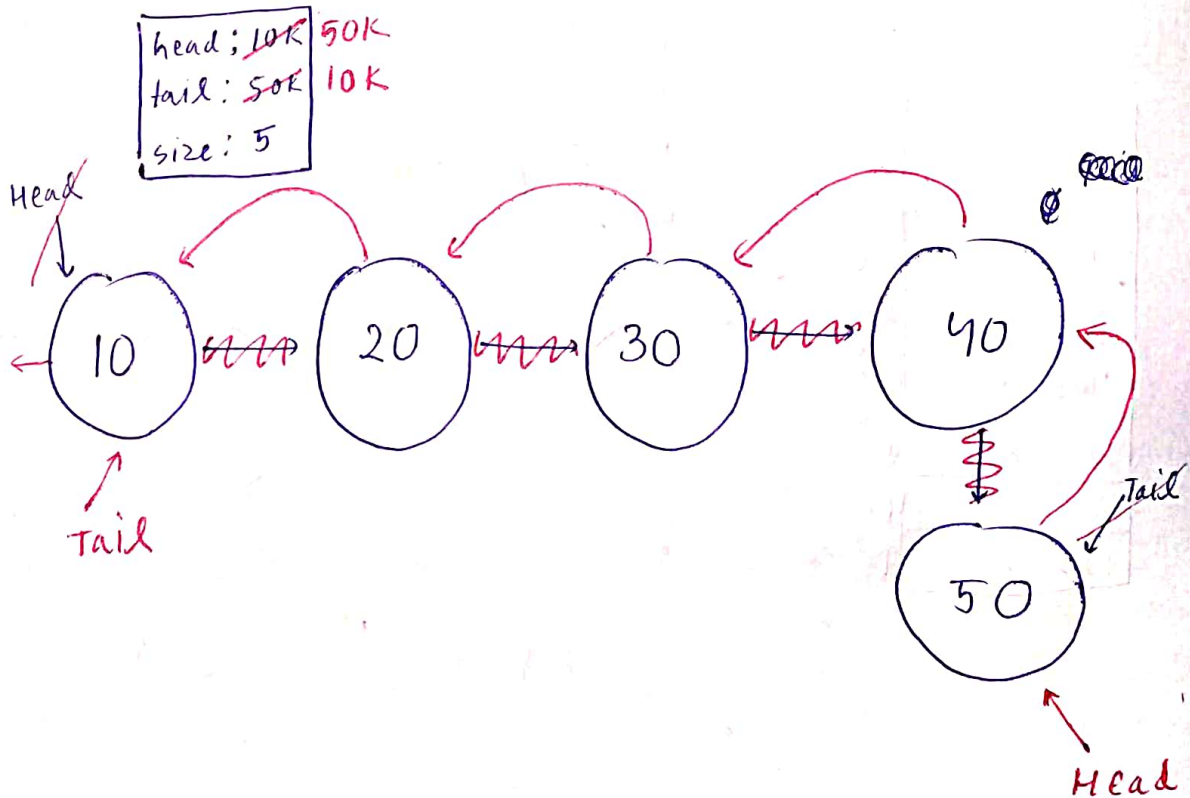 head; 10K 50K
tail: 50K 10K
size: 5
Head
10
20
30
40
Tail
Tail
50
Head